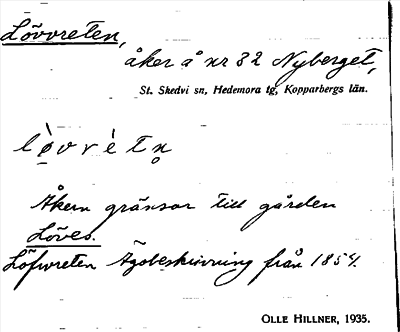 Lövvreten,
åker å nr 32 Nyberget,
St. Skedvi sn, Hedemora tg, Kopparbergs län.
lø̀vrètn̥
Åkern gränsar till gården
Löves.
Löfvreten Ägobeskrivning från 1854.
OLLE HILLNER, 1935.